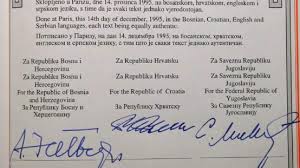 Sklopljeno u Parizu, dne 14. prosinca 1995, na bosanskom, hrvatskom, engleskom i
srpskom jeziku, a time da je svaki tekst jednako vjerodostojan.
Done at Paris, this 14th day of december, 1995, in the Bosnian, Croatian, English and
Serbian languages, each text being equally authentic.
Потписано у Паризу, на дан 14. децембра 1995, на босанском, хрватском,
енглеском и српском језику, с тим да је сваки текст једнако аутентичан.
Za Republiku Bosnu i Hercegovinu
Za Republiku Hrvatsku
Za Saveznu Republiku Jugoslaviju
For the Republic of Bosnia and Herzegovina
For the Republic of Croatia
For the Federal Republic of Yugoslavia
За Републику Босну и Херцеговину
За Републику Хрватску
За Савезну Републику Југославију